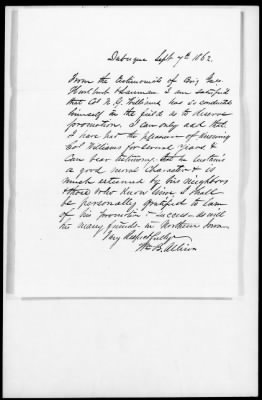 Dubuque Sept 7th 1862.
From the testimonials of Brig Gens
Hurlburt & Sherman I am satisfied
that Col W. G. Williams has so conducted
himself in the field as to deserve
promotion. I can only add that
I have had the pleasure of knowing
Col Williams for several years &
can bear testimony that he sustains
a good moral character & is
much esteemed by his neighbors
& those who know him. I shall
be personally gratified to learn
of his promotion & success as will
his many friends in Northern Iowa
Very Respectfully
Wm B. Allison